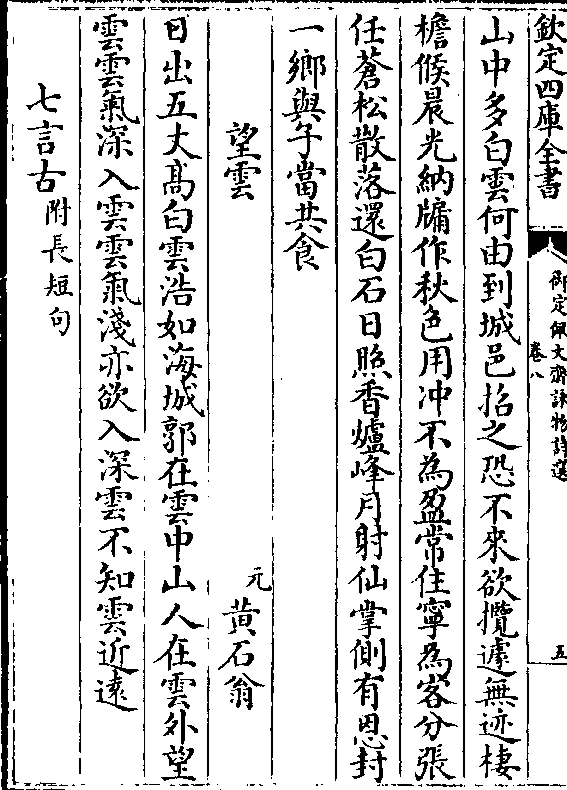 欽定四庫全書
御定佩文齋詠物詩選
卷八
五
山中多白雲何由到城邑招之恐不來欲攬遽無迹棲
檐候晨光納牖作秋色用冲不為盈常住寧為客分張
任蒼松散落還白石日照香爐峰月射仙掌側有恩封
一鄉與子當共食
望雲
元黃石翁
日出五丈高白雲浩如海城郭在雲中山人在雲外望
雲雲氣深入雲雲氣淺亦欲入深雲不知雲近遠
七言古附長短句